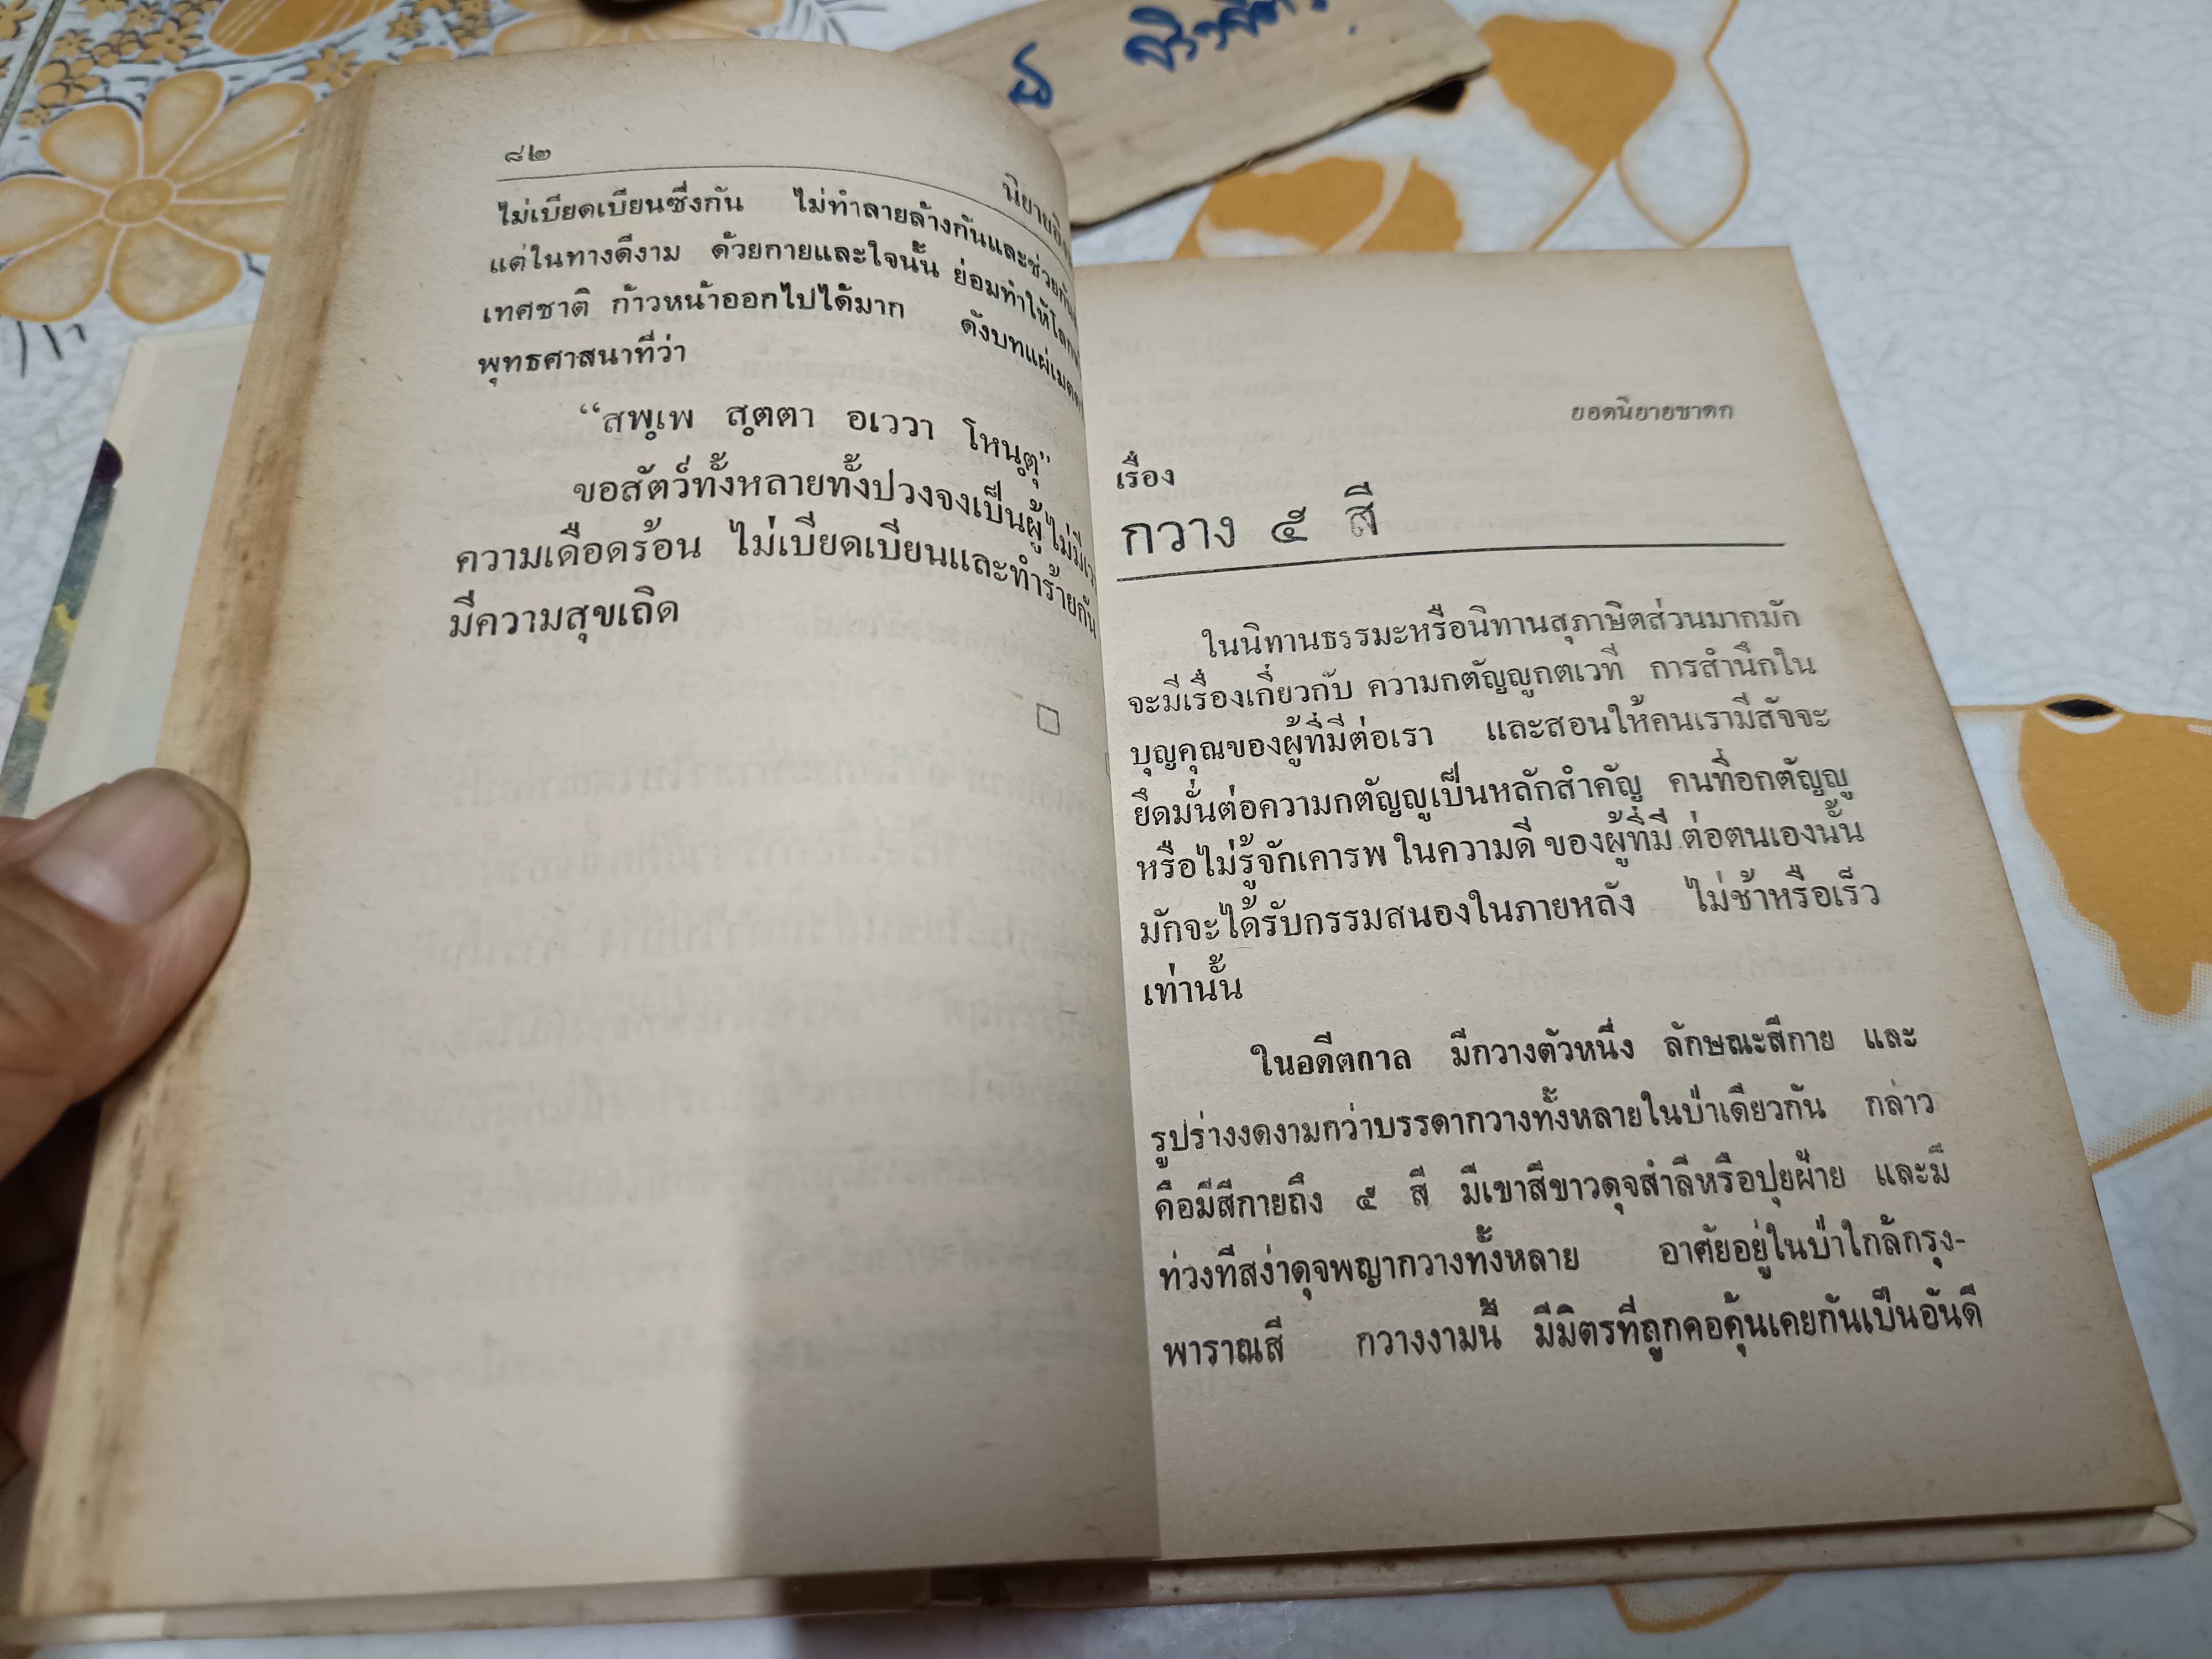 ชิวจิตร
๘๒
นิยายอิง
ไม่เบียดเบียนซึ่งกัน ไม่ทำลายล้างกันและช่วยกัน
แต่ในทางดีงาม ด้วยกายและใจนั้น ย่อมทำให้โลก
เทศชาติ ก้าวหน้าออกไปได้มาก ดังบทแผ่เมตตา
พุทธศาสนาที่ว่า
“สพฺเพ สตฺตา อเววา โหนฺตุ”
ขอสัตว์ทั้งหลายทั้งปวงจงเป็นผู้ไม่มีเว
ความเดือดร้อน ไม่เบียดเบียนและทำร้ายกัน
มีความสุขเถิด
ยอดนิยายชาดก
เรื่อง
กวาง ๕ สี
ในนิทานธรรมะหรือนิทานสุภาษิตส่วนมากมัก
จะมีเรื่องเกี่ยวกับ ความกตัญญูกตเวที การสำนึกใน
บุญคุณของผู้ที่มีต่อเรา และสอนให้คนเรามีสัจจะ
ยึดมั่นต่อความกตัญญูเป็นหลักสำคัญ คนที่อกตัญญู
หรือไม่รู้จักเคารพ ในความดี ของผู้ที่มี ต่อตนเองนั้น
มักจะได้รับกรรมสนองในภายหลัง ไม่ช้าหรือเร็ว
เท่านั้น
ในอดีตกาล มีกวางตัวหนึ่ง ลักษณะสีกาย และ
รูปร่างงดงามกว่าบรรดากวางทั้งหลายในป่าเดียวกัน กล่าว
คือมีสีกายถึง ๕ สี มีเขาสีขาวดุจสำลีหรือปุยฝ้าย และมี
ท่วงทีสง่าดุจพญากวางทั้งหลาย อาศัยอยู่ในป่าใกล้กรุง-
พาราณสี กวางงามนี้ มีมิตรที่ถูกคอคุ้นเคยกันเป็นอันดี